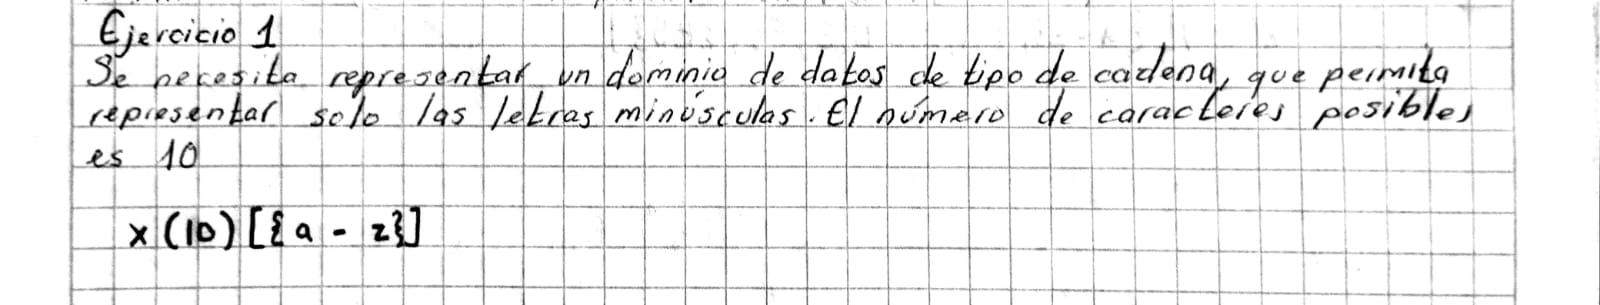 Ejercicio 1
Se necesita representar un dominio de datos de tipo de cadena, que permita
representar solo las letras minúsculas. El número de caracteres posibles
es 10
x (10) [{a - z}]